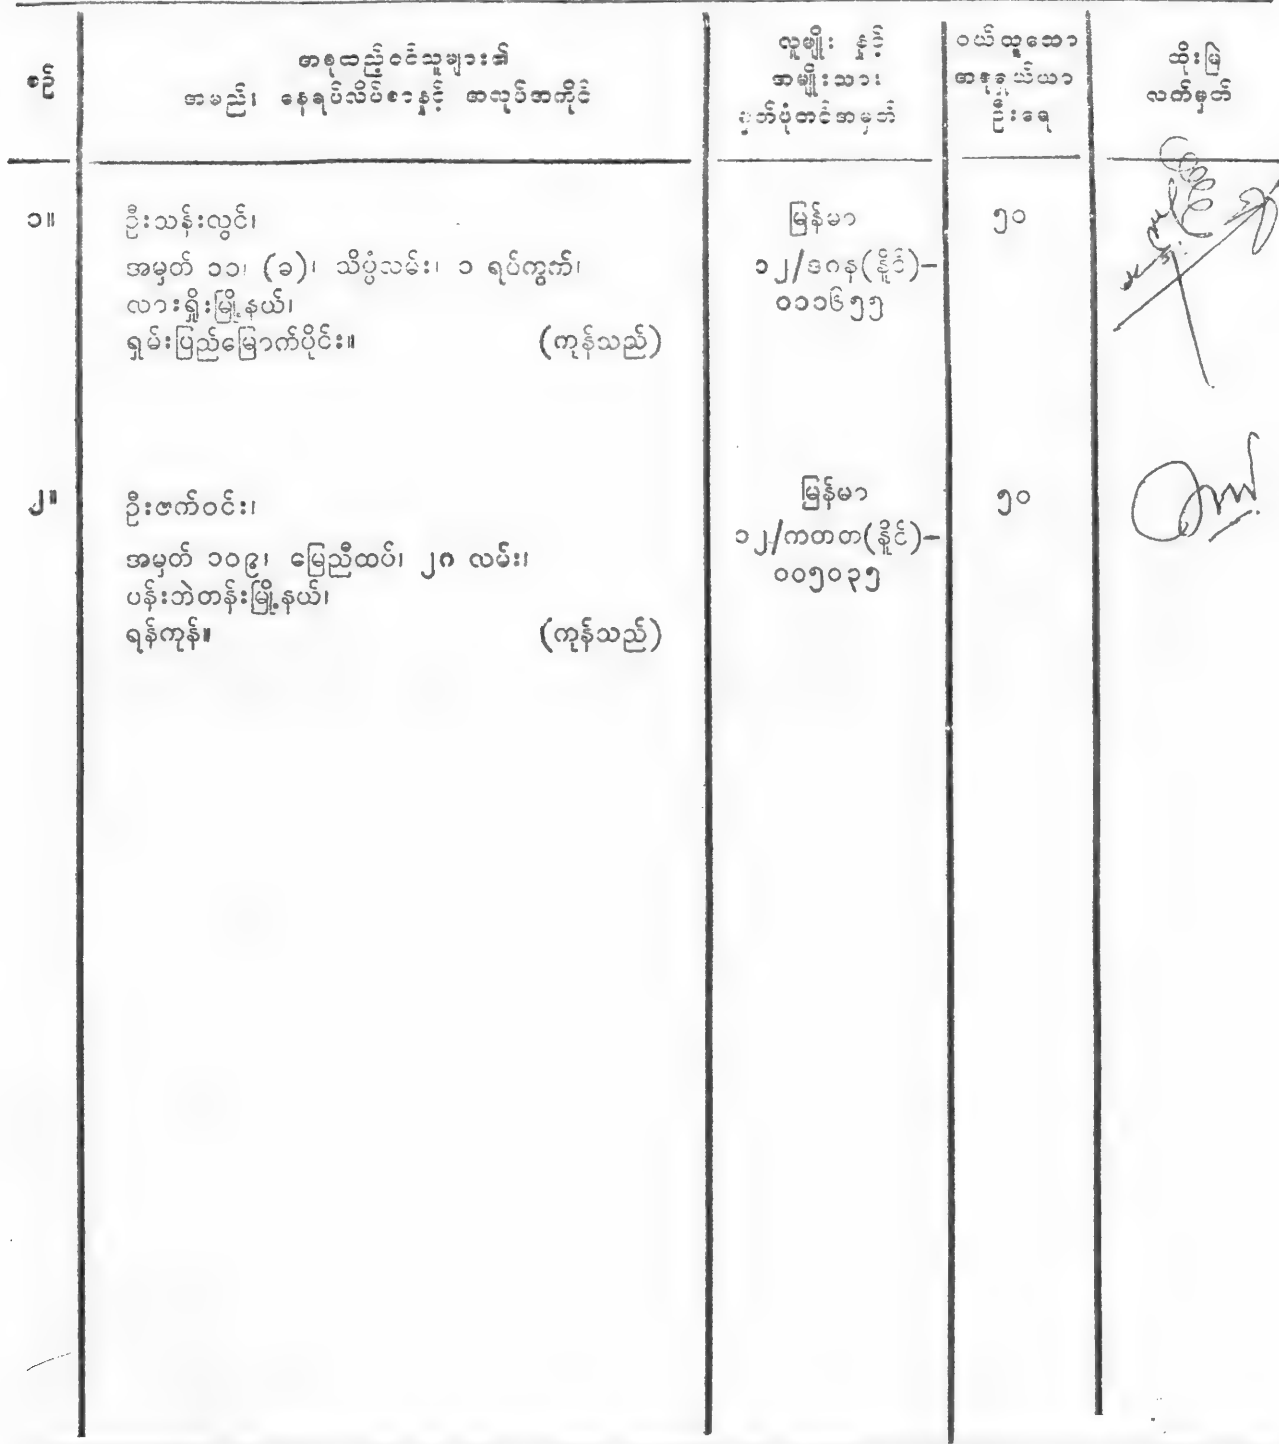 စဉ်
အစုထည့်ဝင်သူများ၏
အမည်၊ နေရပ်လိပ်စာနှင့် အလုပ်အကိုင်
လူမျိုး နှင့်
အမျိုးသား
မှတ်ပုံတင်အမှတ်
ဝယ်ယူသော
အစုရှယ်ယာ
ဦးရေ
ထိုးမြဲ
လက်မှတ်
၁။
ဦးသန်းလွင်၊
အမှတ် ၁၁၊ (ခ)၊ သိပ္ပံလမ်း၊ ၁ ရပ်ကွက်၊
လားရှိုးမြို့နယ်၊
ရှမ်းပြည်မြောက်ပိုင်း။ (ကုန်သည်)
မြန်မာ
၁၂/ဒဂန(နိုင်)-
၀၁၁၆၅၅
၅၀
၂။
ဦးဇက်ဝင်း၊
အမှတ် ၁၀၉၊ မြေညီထပ်၊ ၂၈ လမ်း၊
ပန်းဘဲတန်းမြို့နယ်၊
ရန်ကုန်။ (ကုန်သည်)
မြန်မာ
၁၂/ကတတ(နိုင်)-
၀၀၅၀၃၅
၅၀